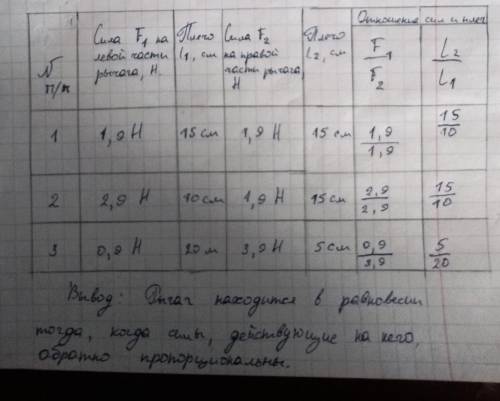 N п/п | Сила F₁ на левой части рычага, Н. | Плечо l₁, см | Сила F₂ на правой части рычага, Н | Плечо L₂, см | Отношения сил и плеч
F₁/F₂ | L₂/L₁
1 | 1,9 Н | 15 см | 1,9 Н | 15 см | 1,9/1,9 | 15/10
2 | 2,9 Н | 10 см | 1,9 Н | 15 см | 2,9/2,9 | 15/10
3 | 0,9 Н | 20 м | 3,9 Н | 5 см | 0,9/3,9 | 5/20
Вывод: Рычаг находится в равновесии
тогда, когда силы, действующие на него,
обратно пропорциональны.